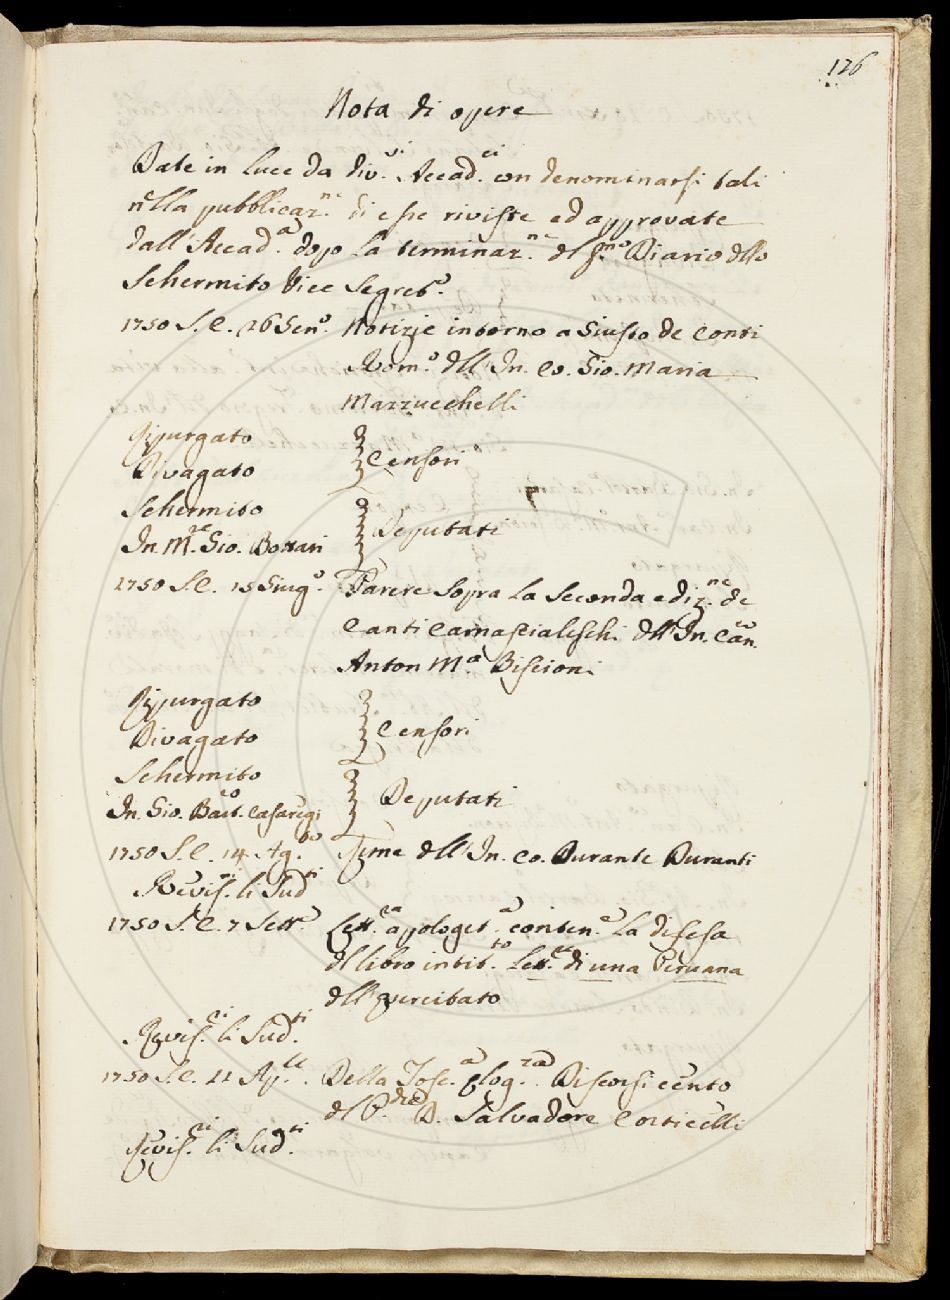 126
Nota di opere
Date in luce da div.ⁱ Accad.ᶜⁱ con denominarsi tali
nella pubblicaz.ⁿᵉ di esse riviste ed approvate
dall'Accad.ᵃ dopo la terminaz.ⁿᵉ del p.ᵐᵒ Diario dello
Schermito Vice Segret.º
1750 S.C. 26 Gen.º Notizie intorno a Giusto de Conti
Rom.º dell'In. Co. Gio. Maria
Mazzucchelli
Ripurgato
Divagato } Censori
Schermito
In. M.ʳᵉ Gio. Bottari } Deputati
1750 S.C. 15 Giug.º Parere sopra la seconda ediz.ⁿᵉ de
Canti Carnascialeschi dell'In. Can.ᶜᵒ
Anton M.ᵃ Biscioni
Ripurgato
Divagato } Censori
Schermito
In. Gio. Bart.ᵒ Casaregi } Deputati
1750 S.C. 14 Ag.ᵗᵒ Rime dell'In. Co. Durante Duranti
Revis.ʳⁱ li Sud.ᵗⁱ
1750 S.C. 7 Sett.ᵉ Lett.ʳᵃ apologet.ᵃ conten.ᵉ la difesa
del libro intit.ᵗᵒ Lett.ʳᵉ di una Peruana
dell'Esercitato
Revis.ʳⁱ li Sud.ᵗⁱ
1750 S.C. 11 Ap.ˡᵉ Della Tosc.ᵃ Eloq.ᶻᵃ Discorsi cento
del P.ᵈʳᵉ D. Salvadore Corticelli
Revis.ʳⁱ li Sud.ᵗⁱ